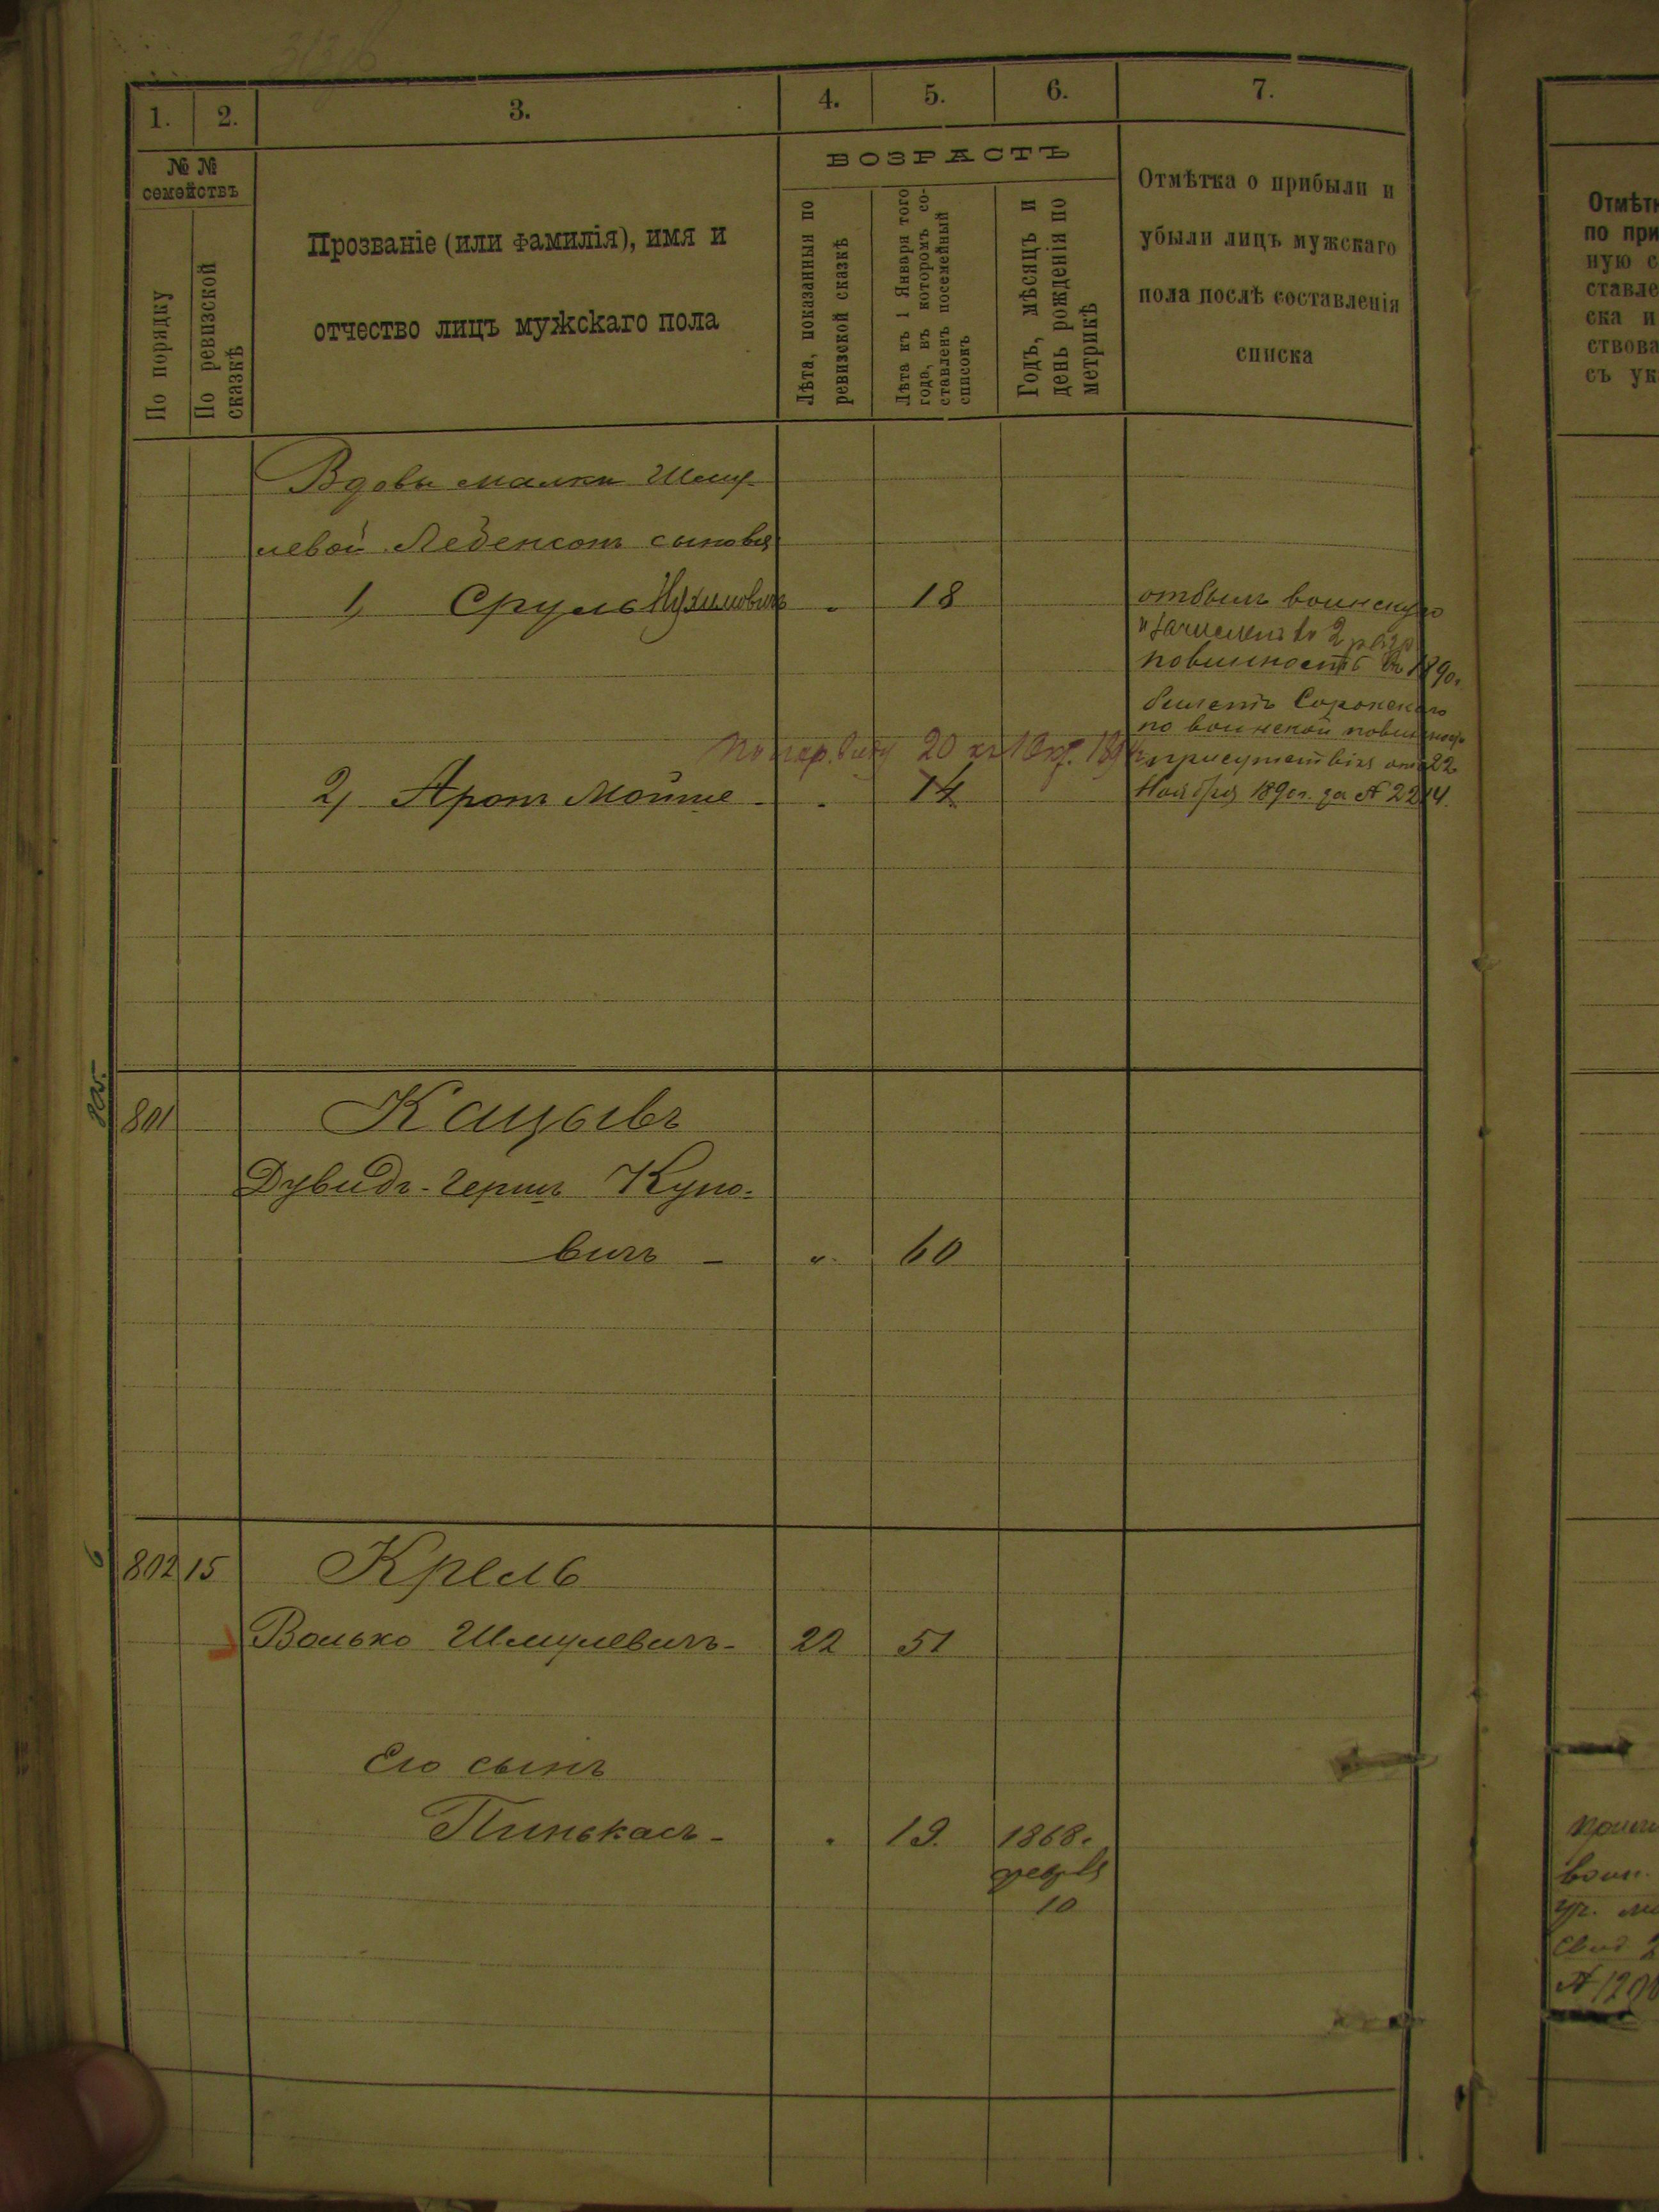 1. 2. 3. 4. 5. 6. 7.
№ №
семействъ
По порядку
По ревизской
сказкѣ
Прозваніе (или фамилія), имя и
отчество лицъ мужскаго пола
ВОЗРАСТЪ
Лѣта, показанныя по
ревизской сказкѣ
Лѣта къ 1 Января того
года, въ которомъ со-
ставленъ посемейный
списокъ
Годъ, мѣсяцъ и
день рожденія по
метрикѣ
Отмѣтка о прибыли и
убыли лицъ мужскаго
пола послѣ составленія
списка
Вдовы Малки Шму-
левой сыновья
1) Сруль Нухимовичъ 18
отбылъ воинскую
и зачисленъ въ 2 разр
повинность въ 1890.
билетъ Сорокскаго
по воинской повинност
20 къ 1 189
присутствія отъ 22
2) Аронъ Мойше - 14
Ноября 1890г. за № 2214.
805.
801 Кацывъ
Дувидъ-Гершъ Куно-
вичъ - " 60
6
802 15 Крель
Волько Шмулевичъ- 22 51
Его сынъ
Пинькасъ- 19. 1868.
10
Отмѣтк
по при
ную с
ставле
ска и
ствова
съ ук
воин.